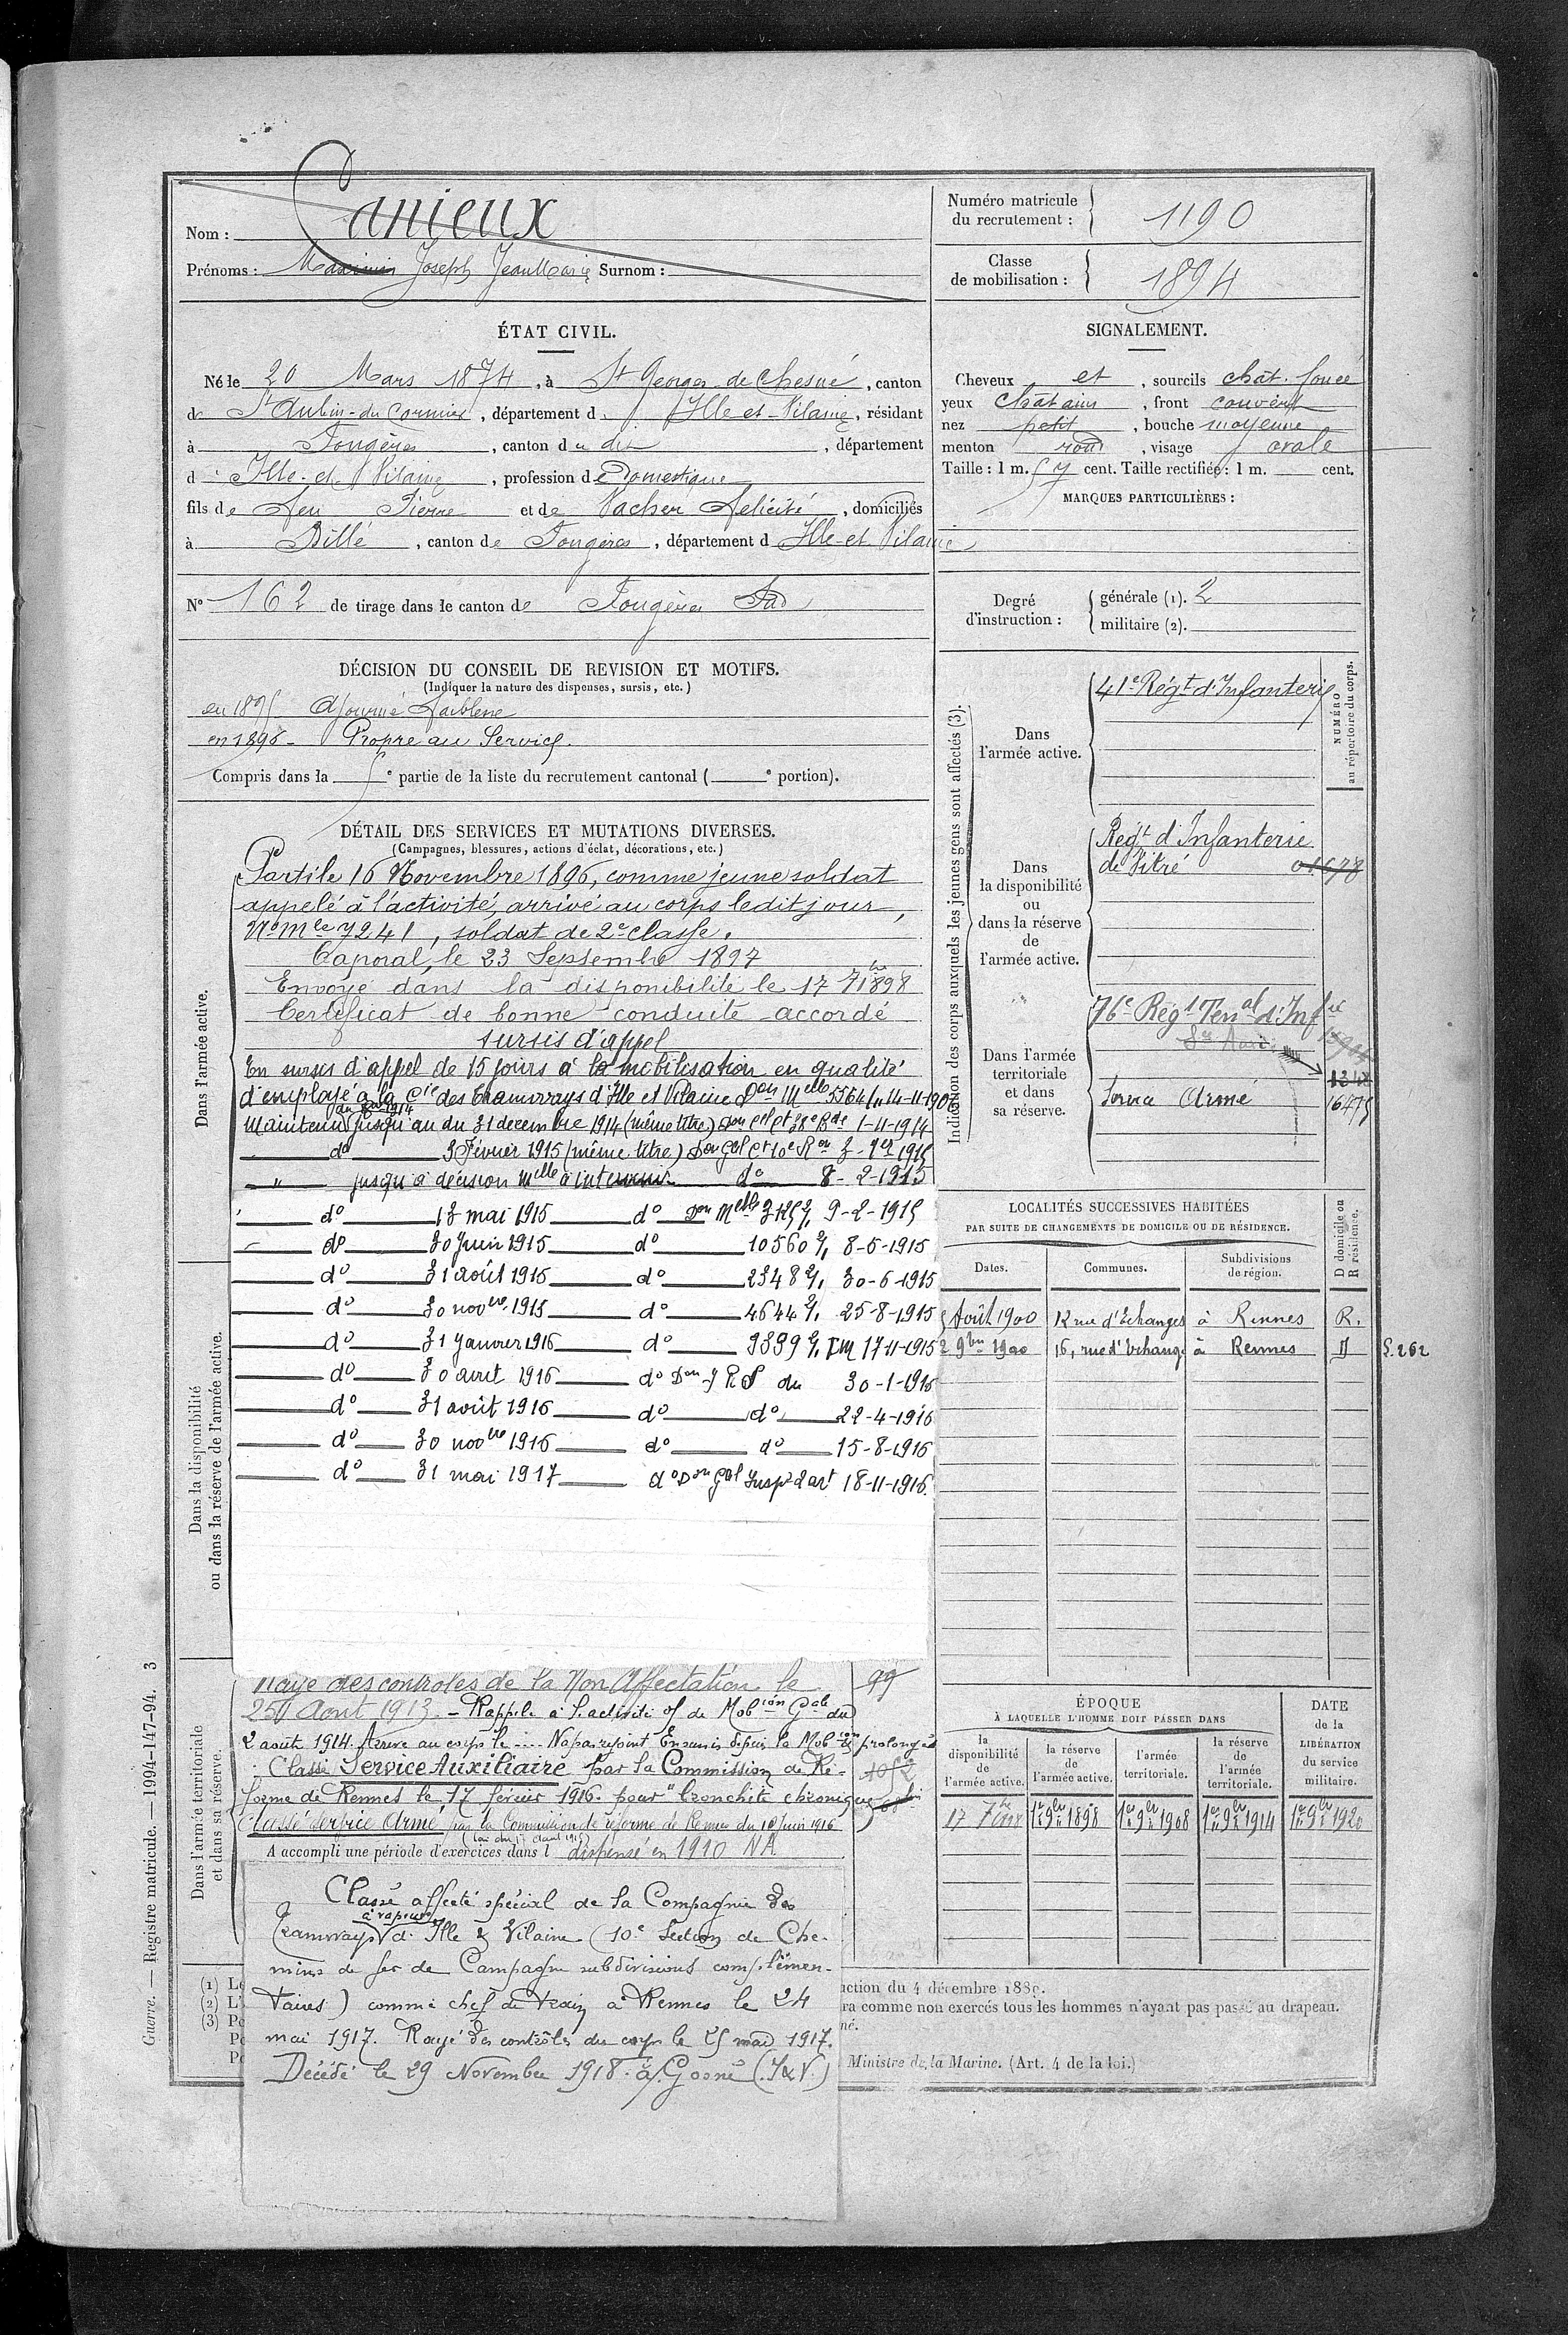 Nom : Canieux
Prénoms : Maximin Joseph Jean Marie Surnom :
Numéro matricule du recrutement : 1190
Classe de mobilisation : 1894
ÉTAT CIVIL.
Né le 20 Mars 1874, à St Georges de Chesné, canton
de St Aubin-du Cormier, département d' Ille-et-Vilaine, résidant
à Fougères, canton du dit, département
d' Ille-et-Vilaine, profession de Domestique
fils de Feu Pierre et de Vacher Félicité, domiciliés
à Billé, canton de Fougères, département d Ille-et Vilaine
N° 162 de tirage dans le canton de Fougères Sud
SIGNALEMENT.
Cheveux et, sourcils chat. foncé
yeux chatains, front couvert
nez petit, bouche moyenne
menton rond, visage ovale
Taille : 1 m. 57 cent. Taille rectifiée : 1 m. cent.
MARQUES PARTICULIÈRES :
Degré d'instruction : générale (1). 2
militaire (2).
DÉCISION DU CONSEIL DE REVISION ET MOTIFS.
(Indiquer la nature des dispenses, sursis, etc.)
en 1895 Ajourné Faiblesse
en 1896 - Propre au Service.
Compris dans la e partie de la liste du recrutement cantonal ( e portion).
DÉTAIL DES SERVICES ET MUTATIONS DIVERSES.
(Campagnes, blessures, actions d'éclat, décorations, etc.)
Dans l'armée active.
Parti le 16 Novembre 1896, comme jeune soldat
appelé à l'activité, arrivé au corps le dit jour,
N° Mle 7241, soldat de 2e classe.
Caporal, le 23 Septembre 1897
Envoyé dans la disponibilité le 17 7bre 1898
Certificat de bonne conduite accordé
sursis d'appel
En sursis d'appel de 15 jours à la mobilisation en qualité
d'employé à la Cie des Tramways d'Ille et Vilaine Don Melle 5564 1/11 14-11-1906
Maintenu jusqu'au du 31 decembre 1914 (même titre) 1-11-1914
do 3 Février 1915 (même titre) 1915
" jusqu'à décision Melle à intervenir do 8-2-1915
do 13 mai 1915 do Don Melle 9-2-1915
do 30 Juin 1915 do 10560 8-5-1915
do 31 août 1915 do 2348 30-6-1915
do 30 novbre 1915 do 4644 25-8-1915
do 31 Janvier 1916 do 9899 17-11-1915
do 30 avril 1916 do Don du 30-1-1916
do 31 août 1916 do do 22-4-1916
do 30 novbre 1916 do do 15-8-1916
do 31 mai 1917 do Don Gal 18-11-1916
Dans la disponibilité ou dans la réserve de l'armée active.
Dans l'armée territoriale et dans sa réserve.
Rayé des controles de la Non Affectation le 99
25 Aout 1913. - Rappelé à l'activité Mobion Gale du
2 août 1914. Arrivé au corps le .... N'a pas rejoint En sursis depuis la Mobion prolongés
Classé Service Auxiliaire par la Commission de Ré-
forme de Rennes le 17 février 1916. pour "bronchite chronique"
Classé Service Armé par la Commission de réforme de Rennes du 10 Juin 1916
(loi du 17 Aout 1915)
A accompli une période d'exercices dans l dispensé en 1910 NA
Classé affecté spécial de la Compagnie des
Tramways à vapeur d'Ille & Vilaine (10e Section de Che-
mins de fer de Campagne subdivisions complémen-
taires) comme chef de train à Rennes le 24
mai 1917. Rayé des contrôles du corps le 25 mai 1917.
Décédé le 29 Novembre 1918. à Gosné (I&V)
Indication des corps auxquels les jeunes gens sont affectés (3).
NUMÉRO au répertoire du corps.
Dans l'armée active.
41e Régt d'Infanterie
Dans la disponibilité ou dans la réserve de l'armée active.
Regt d'Infanterie
de Vitré 01678
Dans l'armée territoriale et dans sa réserve.
76e Régt Terral d'Infie
Service Armé 16475
LOCALITÉS SUCCESSIVES HABITÉES
PAR SUITE DE CHANGEMENTS DE DOMICILE OU DE RÉSIDENCE.
Dates. Communes. Subdivisions de région. D domicile ou R résidence.
5 Août 1900 12 rue d'Echanges à Rennes R.
2 9bre 1900 16, rue d'Echange à Rennes D S.262
ÉPOQUE
À LAQUELLE L'HOMME DOIT PASSER DANS
la disponibilité de l'armée active. la réserve de l'armée active. l'armée territoriale. la réserve de l'armée territoriale.
DATE de la LIBÉRATION du service militaire.
17 7bre 1898 1er 9bre 1898 1er 9bre 1908 1er 9bre 1914 1er 9bre 1920
(1) Le
(2) L'
(3) Po
Po
Po
uction du 4 décembre 1889.
ra comme non exercés tous les hommes n'ayant pas passé au drapeau.
né.
Ministre de la Marine. (Art. 4 de la loi.)
Guerre. — Registre matricule. — 1994-147-94. 3